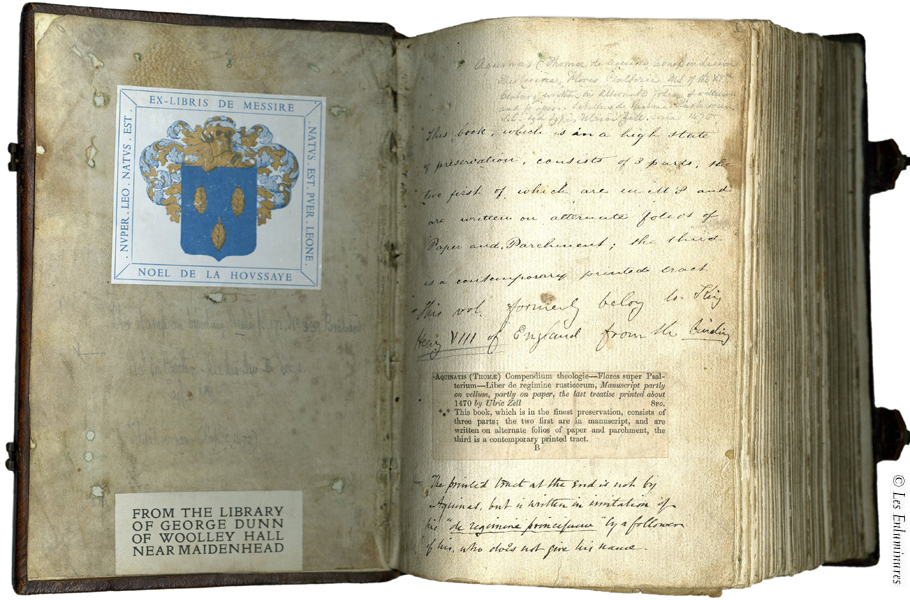 EX-LIBRIS DE MESSIRE
· NVPER · LEO · NATVS · EST ·
· NATVS · EST · PVER · LEONE ·
NOEL DE LA HOVSSAYE
FROM THE LIBRARY
OF GEORGE DUNN
OF WOOLLEY HALL
NEAR MAIDENHEAD
Aquinas (Thomae de
Flores Psalterii
Century, written on alternate folios of vellum
1470
This book, which is in a high state
of preservation, consists of 3 parts; the
two first of which are in MS and
are written on alternate folios of
Paper and Parchment; the third
is a contemporary printed tract
This vol. formerly belong to King
Henry VIII of England from the binding
AQUINATIS (THOMÆ) Compendium theologie—Flores super Psal-
terium—Liber de regimine rusticorum, Manuscript partly
on vellum, partly on paper, the last treatise printed about
1470 by Ulric Zell 8vo.
*** This book, which is in the finest preservation, consists of
three parts; the two first are in manuscript, and are
written on alternate folios of paper and parchment, the
third is a contemporary printed tract.
B
The printed tract at the end is not by
Aquinas, but is written in imitation of
his "de regimine principum" by a follower
of his, who does not give his name.
© Les Enluminures